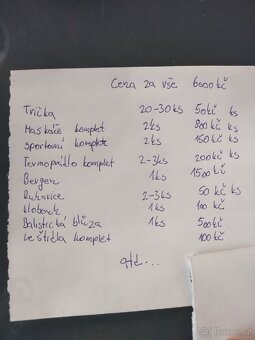 Cena za vše 6000kč
Trička 20-30ks 50kč ks
Maskáče komplet 2ks 800kč ks
sportovní komplet 2ks 150kč ks
Termoprádlo komplet 2-3ks 200kč ks
Bergen 1ks 1500kč
Rukavice 2-3ks 50 kč ks
klobouk 1ks 100 kč
Balistická blůza 1ks 500kč
Leštidla komplet 100kč
Atd...
Bazoš.cz